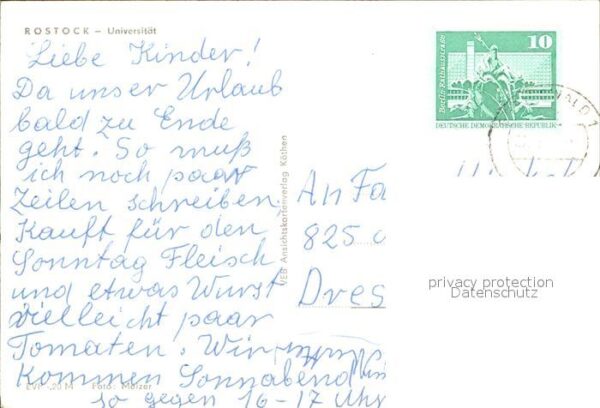 ROSTOCK – Universität
Liebe Kinder!
Da unser Urlaub
bald zu Ende
geht. So muß
ich noch paar
Zeilen schreiben.
Kauft für den
Sonntag Fleisch
und etwas Wurst
vielleicht paar
Tomaten. Wir
Kommen Sonnabend
so gegen 16–17 Uhr
EVP -,20 M Foto: Mälzer
VEB Ansichtskartenverlag Köthen
10
Berlin-Rathausstraße
DEUTSCHE DEMOKRATISCHE REPUBLIK
An Fa
825
Dres
privacy protection
Datenschutz